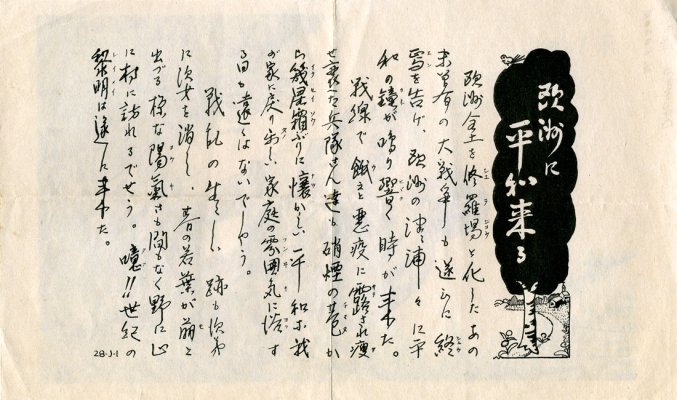 欧洲に
平和来る
欧洲全土を修羅場と化したあの
未曽有の大戦争も遂に終
焉を告げ、欧洲の津々浦々に平
和の鐘が鳴り響く時が来た。
戦線で餓えと悪疫に露され痩
せ衰へた兵隊さん達も硝煙の巷か
ら幾星霜ぶりに懐かしい平和な我
が家に戻り 家庭の雰囲気に浴す
る日も遠くはないでしょう。
戦乱の生々しい跡も次第
に 消し、春の若葉が萌え
出づる様な陽氣さも間もなく野に山
に村に訪れるでせう。噫!!世紀の
黎明は遂に来た。
28-J-1